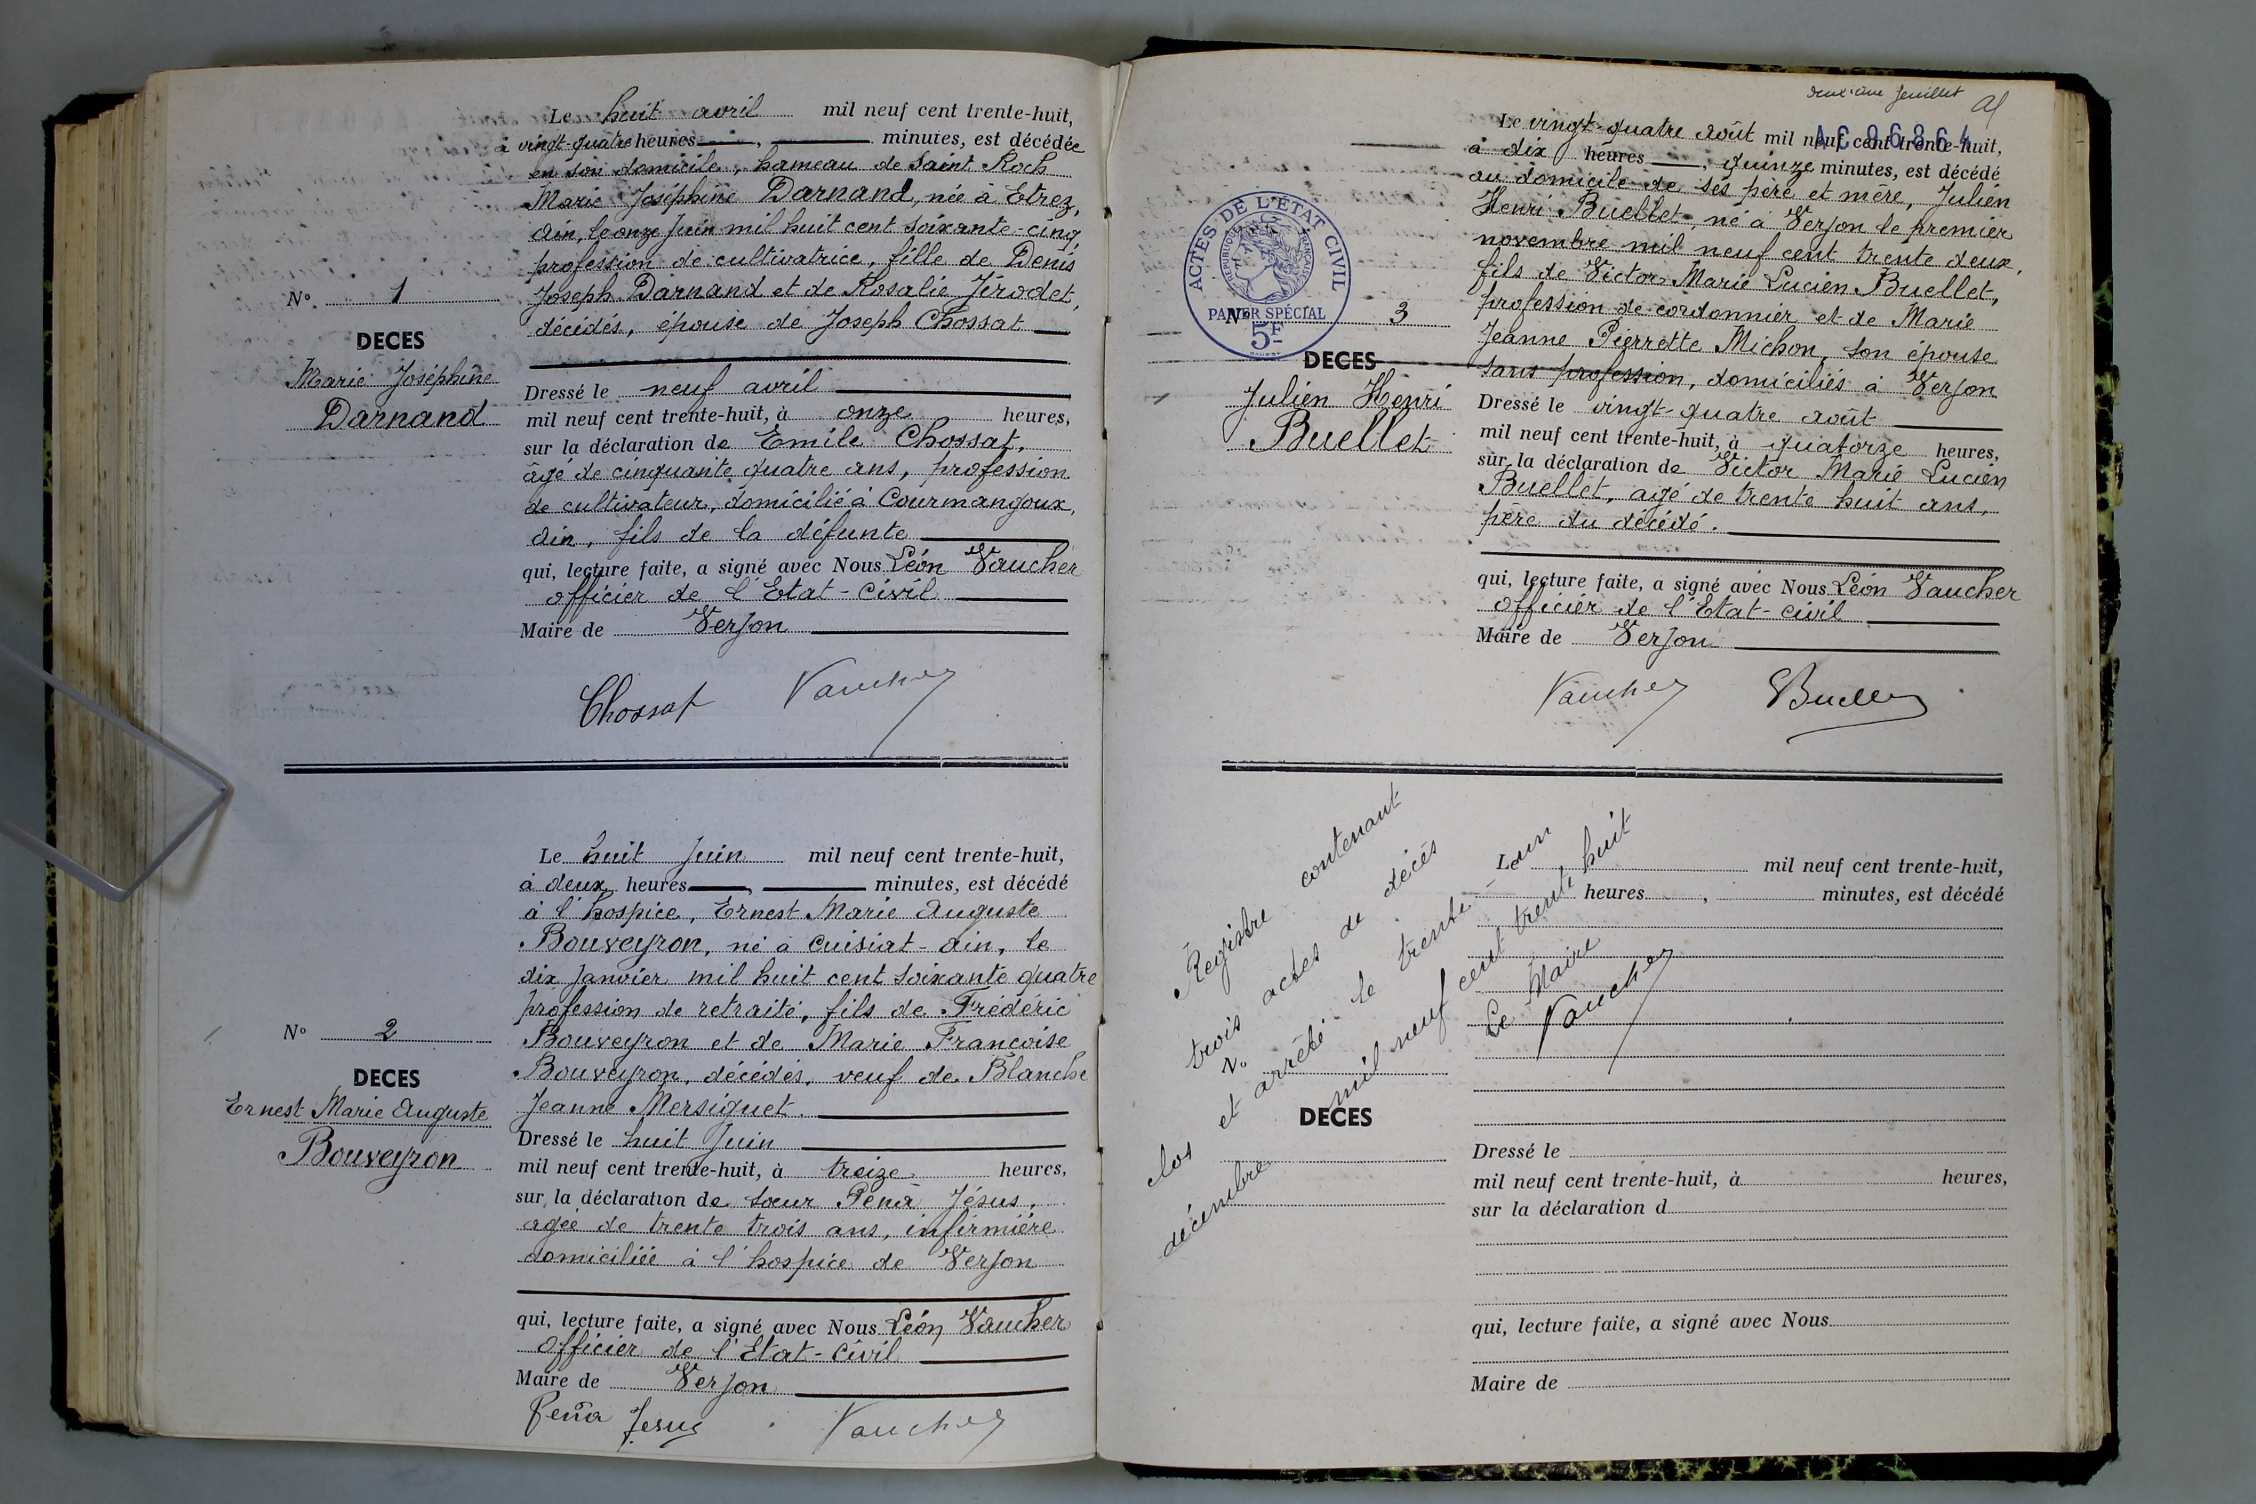 Le huit avril mil neuf cent trente-huit,
à vingt-quatre heures , minutes, est décédée
en son domicile, hameau de Saint Roch
Marie Joséphine Darnand, née à Etrez,
Ain, le onze Juin mil huit cent soixante-cinq
profession de cultivatrice, fille de Denis
Joseph Darnand et de Rosalie Jérodet,
décédés, épouse de Joseph Chossat
N° 1
DECES
Marie Joséphine
Darnand
Dressé le neuf avril
mil neuf cent trente-huit, à onze heures,
sur la déclaration de Emile Chossat,
âgé de cinquante quatre ans, profession
de cultivateur, domicilié à Courmangoux,
Ain, fils de la défunte
qui, lecture faite, a signé avec Nous Léon Vaucher
officier de l'Etat-Civil
Maire de Verjon
Chossat Vaucher
Le huit Juin mil neuf cent trente-huit,
à deux heures , minutes, est décédé
à l'hospice, Ernest Marie Auguste
Bouveyron, né à Cuisiat-Ain, le
dix Janvier mil huit cent soixante quatre
profession de retraité, fils de Frédéric
Bouveyron et de Marie Françoise
Bouveyron, décédés, veuf de Blanche
Jeanne Mersiguet.
N° 2
DECES
Ernest Marie Auguste
Bouveyron
Dressé le huit Juin
mil neuf cent trente-huit, à treize heures,
sur la déclaration de sœur Pena Jésus,
agée de trente trois ans, infirmière
domiciliée à l'hospice de Verjon
qui, lecture faite, a signé avec Nous Léon Vaucher
officier de l'Etat-Civil
Maire de Verjon
Peña Jesus Vaucher
deuxième feuillet
AC 06864
Le vingt-quatre août mil neuf cent trente-huit,
à dix heures , quinze minutes, est décédé
au domicile de ses père et mère, Julien
Henri Buellet, né à Verjon le premier
novembre mil neuf cent trente deux,
fils de Victor Marie Lucien Buellet,
profession de cordonnier et de Marie
Jeanne Pierrette Michon, son épouse
sans profession, domiciliés à Verjon
ACTES DE L'ÉTAT CIVIL
RÉPUBLIQUE FRANÇAISE
PAPIER SPÉCIAL
5F
N° 3
DECES
Julien Henri
Buellet
Dressé le vingt-quatre août
mil neuf cent trente-huit, à quatorze heures,
sur la déclaration de Victor Marie Lucien
Buellet, agé de trente huit ans,
père du décédé.
qui, lecture faite, a signé avec Nous Léon Vaucher
officier de l'Etat-civil
Maire de Verjon
Vaucher Buellet
Registre contenant
trois actes de décès
clos et arrêté le trente-un
décembre mil neuf cent trente huit
Le Maire
Vaucher
Le mil neuf cent trente-huit,
heures , minutes, est décédé
N°
DECES
Dressé le
mil neuf cent trente-huit, à heures,
sur la déclaration d
qui, lecture faite, a signé avec Nous
Maire de